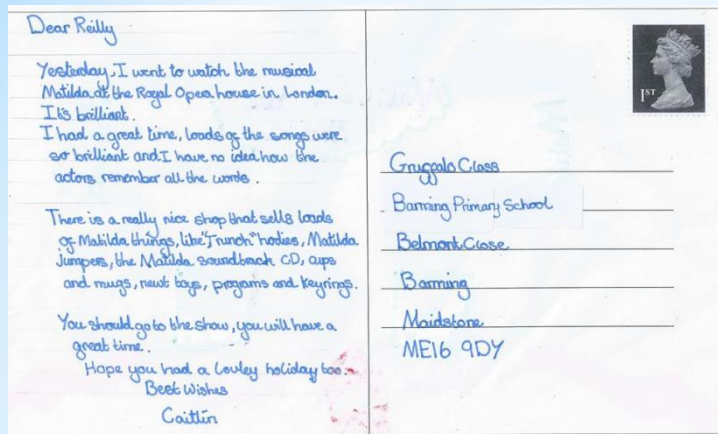 Dear Reilly
Yesterday, I went to watch the musical
Matilda, at the Royal Opera house in, London.
It's brilliant.
I had a great time, loads of the songs were
so brilliant and I have no idea how the
actors remember all the words.
There is a really nice shop that sells loads
of Matilda things, like "Trunch" hodies, Matilda
Jumpers, the Matilda soundtrack CD, cups
and mugs, newt toys, programs and keyrings.
You should go to the show, you will have a
great time.
Hope you had a Lovley holiday too.
Best Wishes
Caitlin
1ST
Gruffalo Class
Barming Primary School
Belmont Close
Barming
Maidstone
ME16 9DY